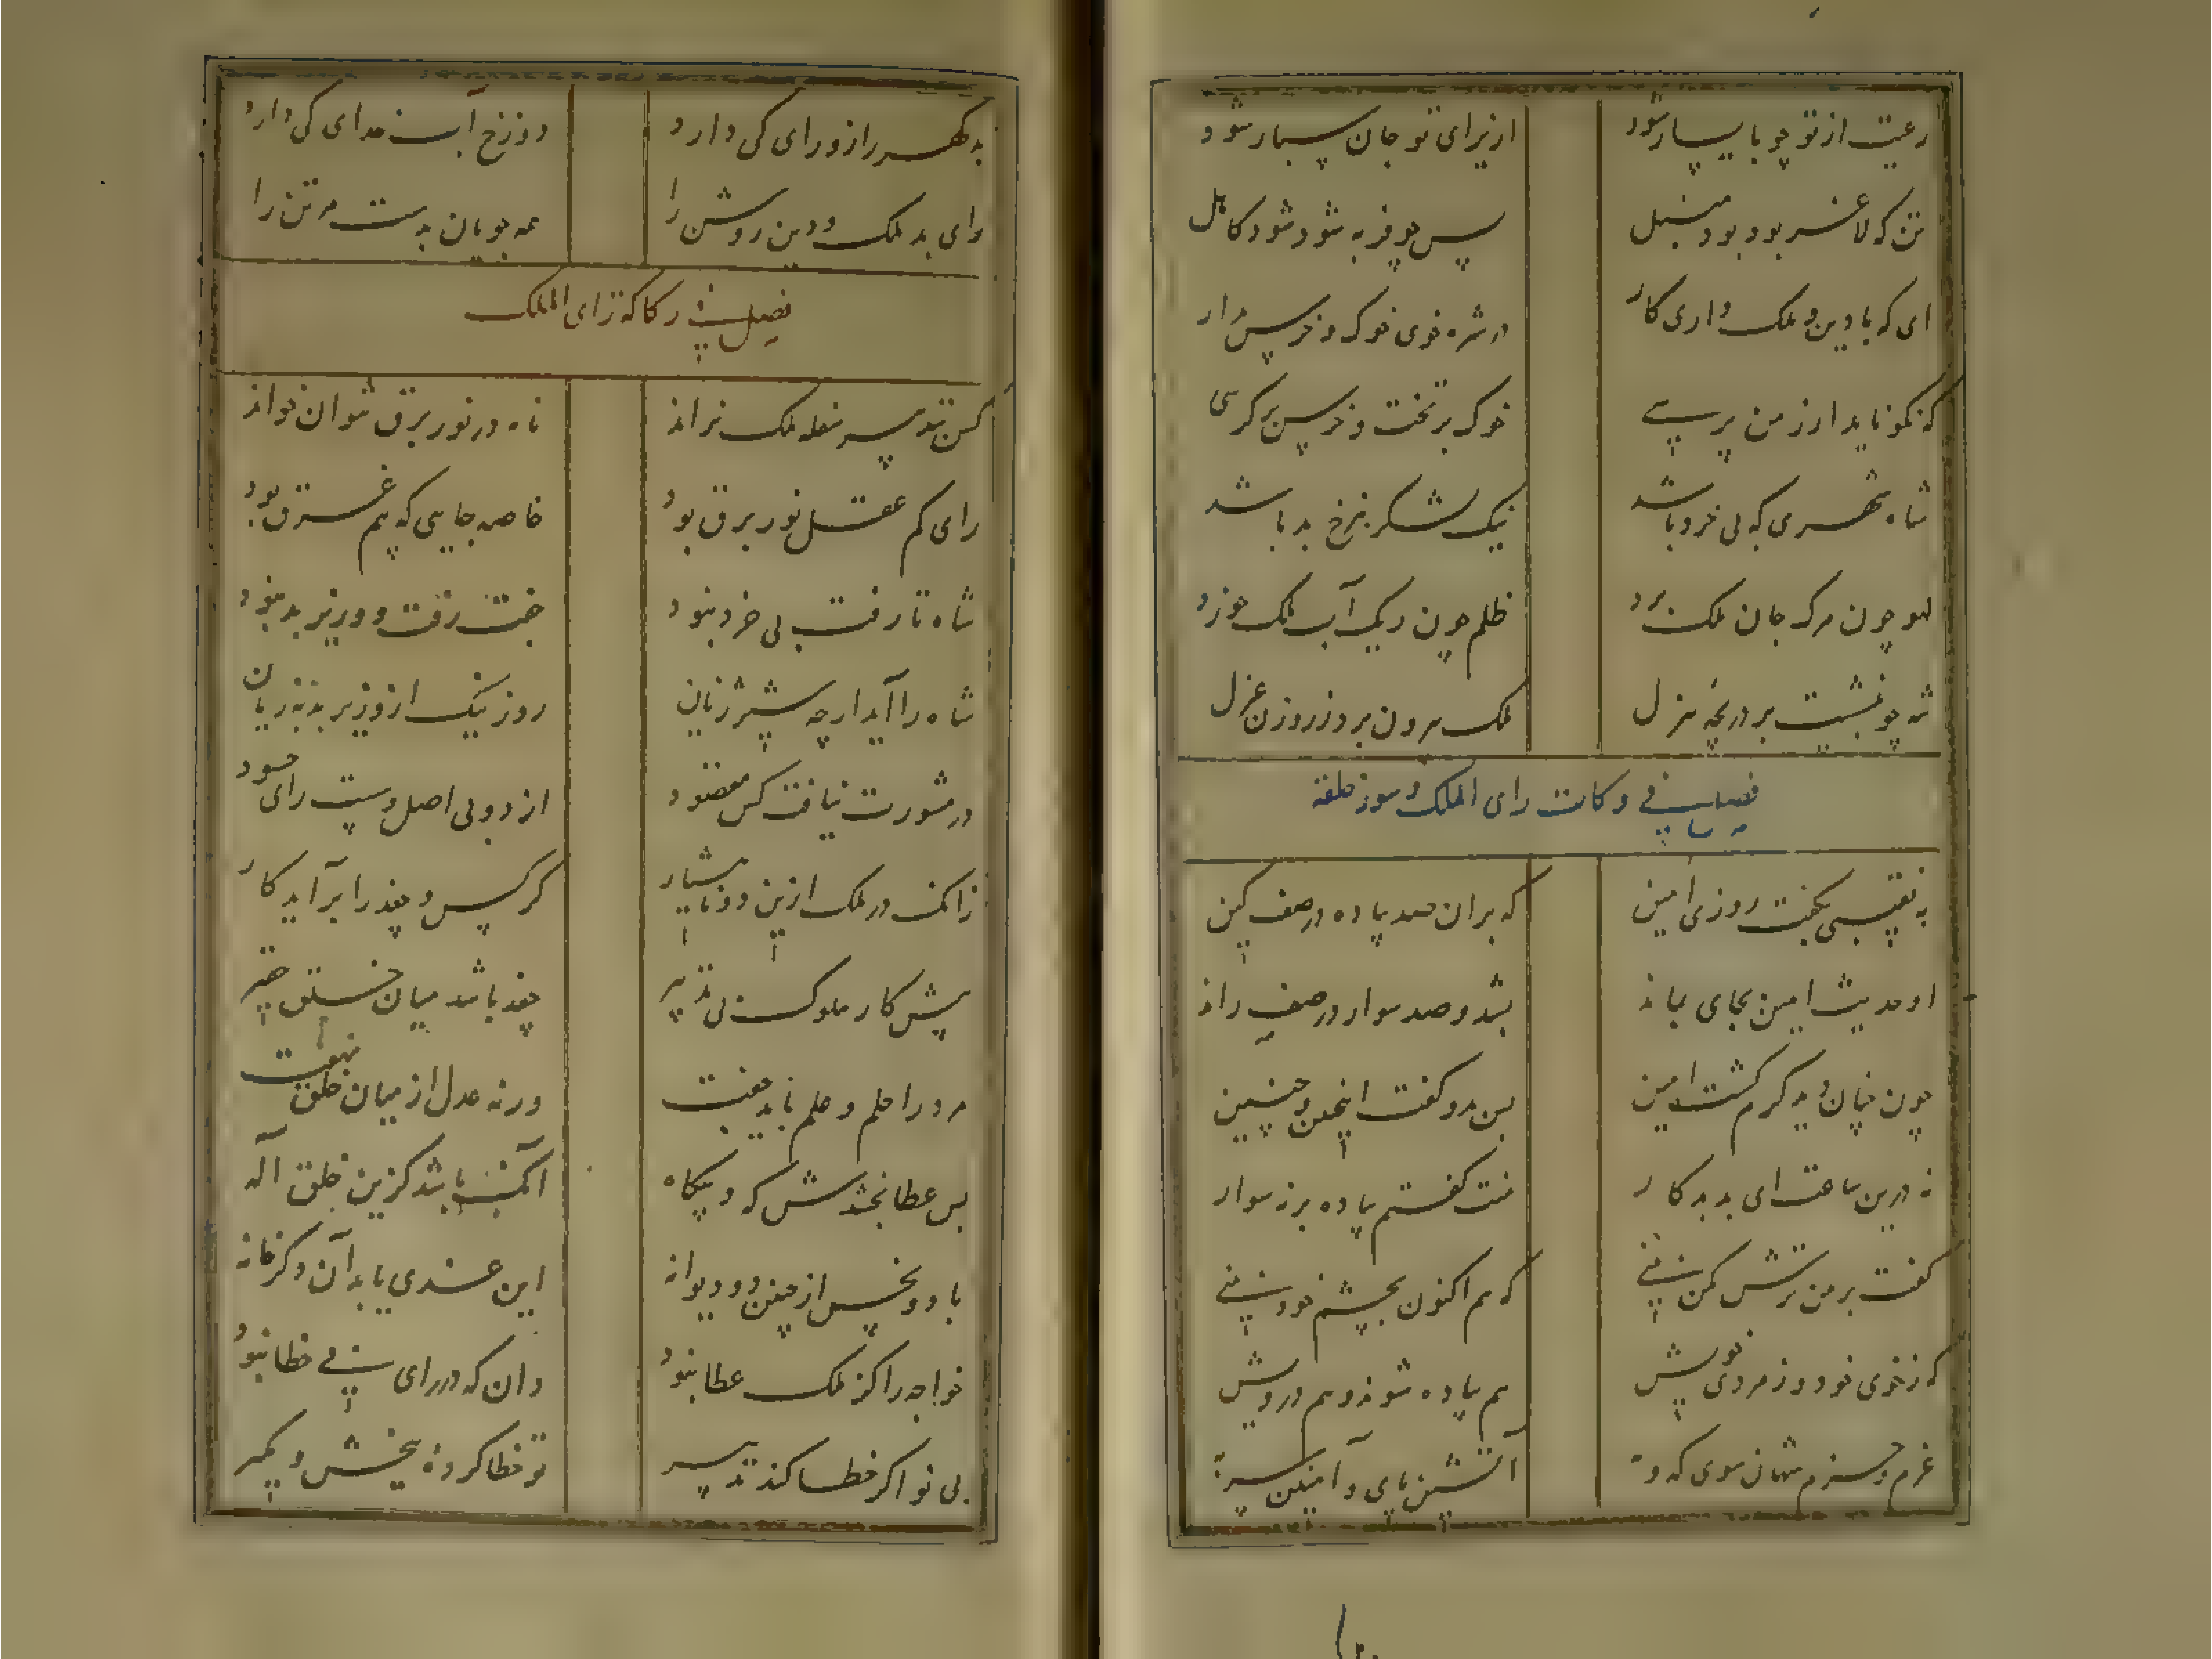 رعیت از تو چو با یسار شود از برای تو جان سپار شود
تن که لاغر بود بود منبل پس چو فربه شود شود کاهل
ای که با دین و ملک داری کار در شره خوی خوک و خرس مدار
که نکو ناید ار ز من پرسی خوک بر تخت و خرس بر کرسی
شاه شهری که بی خرد باشد نیک لشکر بنرخ بد باشد
لهو چون مرک جان ملک برد ظلم چون ریک آب ملک خورد
شه چو بنشست بر دریچه هزل ملک بیرون برد ز روزن عزل
فصل فی رکاکت رای الملک و سوء خلقه
به نقیبی بگفت روزی امین که بران صد پیاده در صف کین
او حدیث امین بجای بماند بشد و صد سوار در صف راند
چون چنان دید گرم گشت امین پس بدو گفت اینچنین و چنین
نه درین ساعت ای بد بدکار منت گفتم پیاده بر نه سوار
گفت بر من ترش مکن بینی که هم اکنون بچشم خود بینی
که ز خوی خود و ز مردی خویش هم پیاده شوند و هم درویش
عزم و حزم شهان سوی که و مه آتشین پای و آهنین سر به
بد گهر را ز و رای کی دارد دوزخ آب خدای کی دارد
رای بد ملک و دین روشن را همچو یان بدست مر تن را
فصل فی رکاکة رای الملک
کس بتدبیر سفله ملک نراند نامه در نور برق نتوان خواند
رای کم عقل نور برق بود خاصه جایی که بیم غرق بود
شاه تا رفت بی خرد نبود جفت رفت و وزیر بد نبود
شاه را آید ارچه شیر ژیان روز نیک از وزیر بد بزیان
در مشورت نیافت کس مقصود از دو بی اصل وست رای حسود
زانکه در ملک ازین دو نا هشیار کرکس و چغد را برآید کار
پیش کار ملوک بی تدبیر چغد باشد میان خلق حقیر
مرد را حلم و علم باید جفت ورنه عدل از میان خلق نهفت
بس عطا بخشدش که و بیگاه آنکه باشد گزین خلق آله
با دو بخس از چنین دو دیوانه این عذری یابد آن دگر خانه
خواجه را کز ملک عطا نبود دان که در رای بی خطا نبود
بی نوا اگر خطا کند تدبیر تو خطا کرده ببخش و مگیر